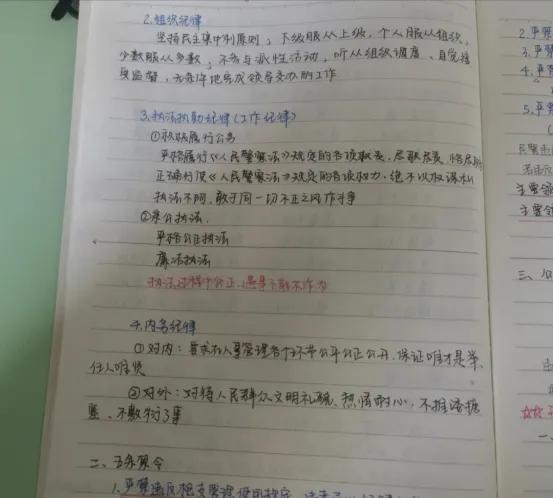 2.组织纪律
坚持民主集中制原则，下级服从上级，个人服从组织，
少数服从多数，不参与派性活动，听从组织调度、自觉接
受监督，无条件地完成领导交办的工作
3.执法执勤纪律(工作纪律)
①积极履行公务
严格履行《人民警察法》规定的各项职责，尽职尽责，恪尽职
正确行使《人民警察法》规定的各项权力，绝不以权谋私
执法不阿，敢于同一切不正之风作斗争
②秉公执法.
严格公正执法
廉洁执法
执法过程中公正,遇事不能不作为
4.内务纪律
①对内：要求在人事管理各个环节公平公正公开，保证唯才是举、
任人唯贤
②对外：对待人民群众文明礼貌、热情耐心，不推诿搪
塞、不敷衍了事
二、五条禁令
1.严禁违反枪支管理使用规定，
2.严禁
3.严禁
4.严禁
5.严禁
民警违
若违反
主要领
主要领
三、